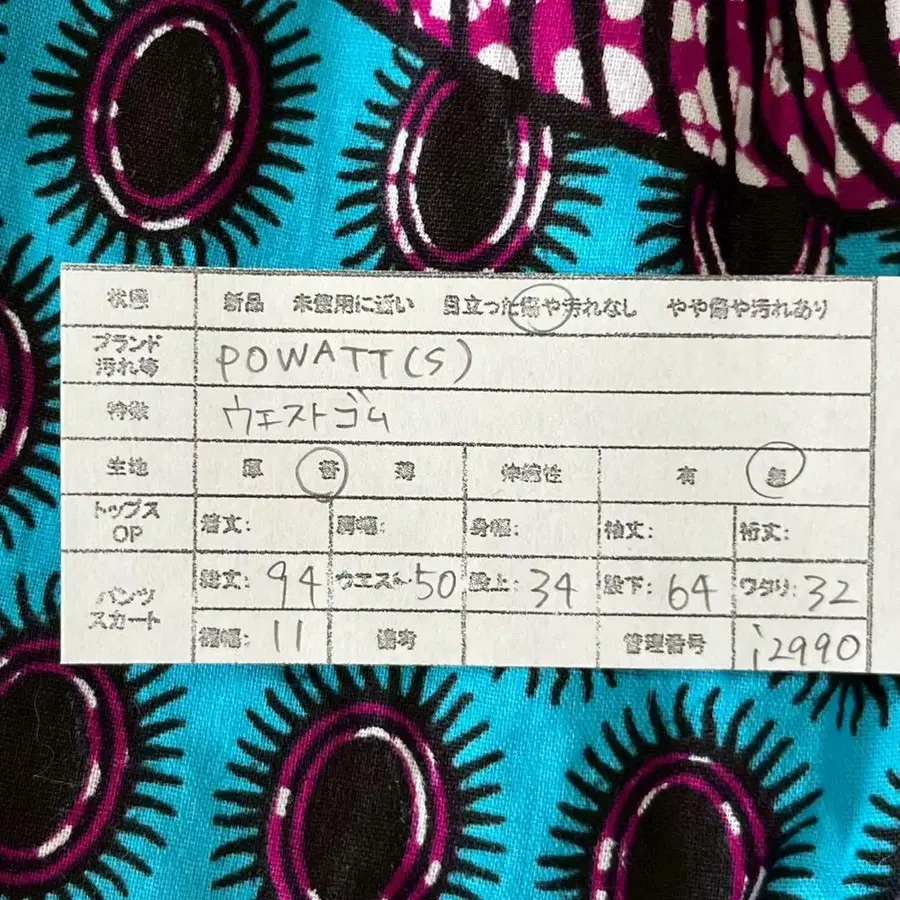 状態 新品 未使用に近い 目立った傷や汚れなし やや傷や汚れあり
ブランド
汚れ等 POWATT(S)
特徴 ウエストゴム
生地 厚 普 薄 伸縮性 有 無
トップス
OP 着丈: 胸幅: 身幅: 袖丈: 裄丈:
パンツ
スカート 総丈: 94 ウエスト 50 股上: 34 股下: 64 ワタリ: 32
裾幅: 11 備考 管理番号 i2990